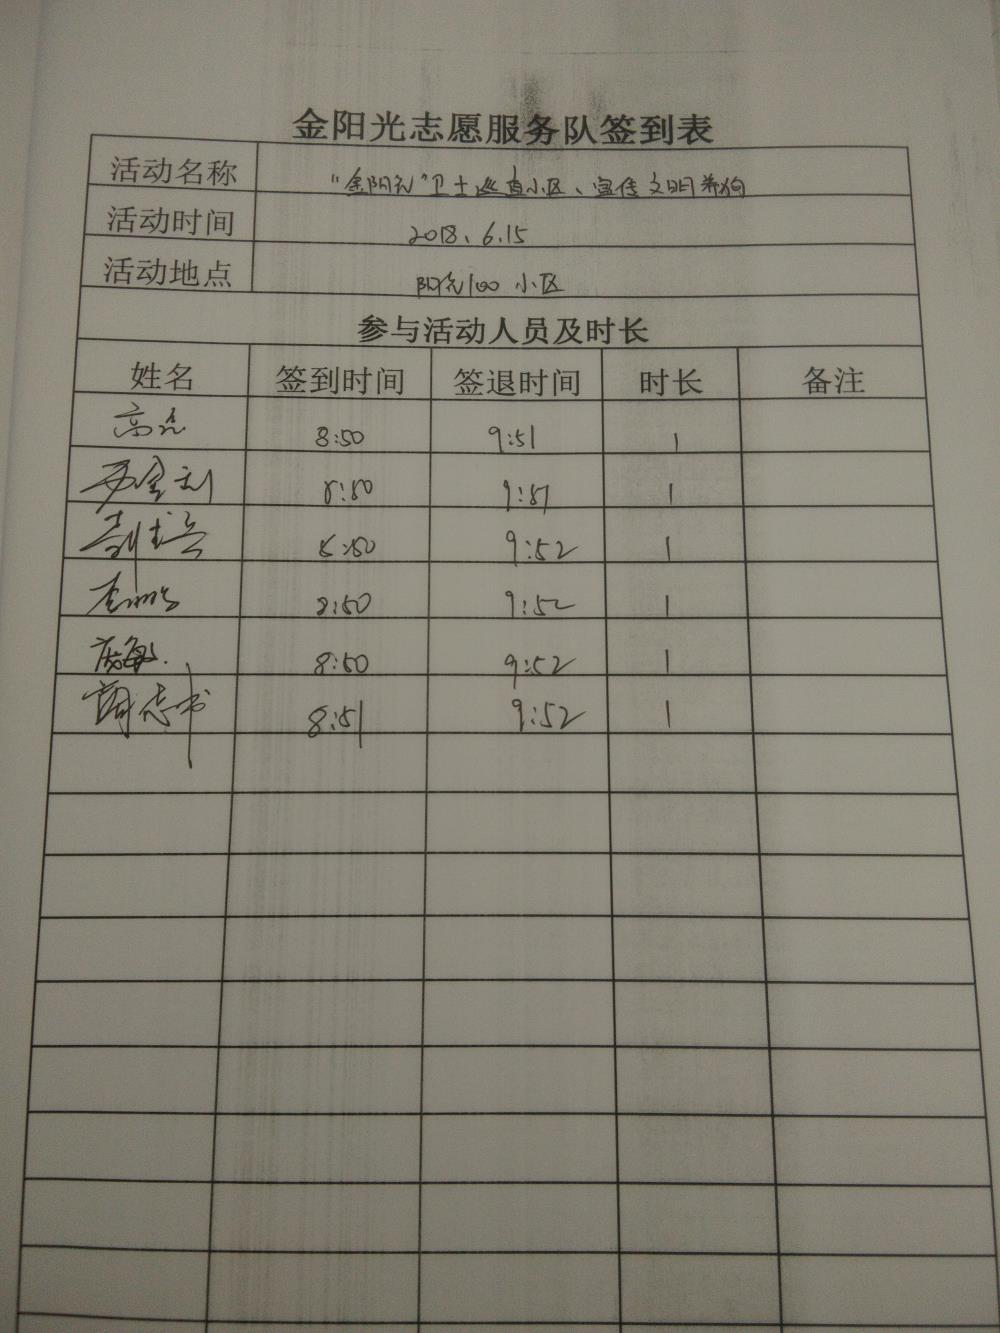 金阳光志愿服务队签到表
活动名称 "金阳光"卫士巡查小区、宣传文明养狗
活动时间 2018、6.15
活动地点 阳光100 小区
参与活动人员及时长
姓名 签到时间 签退时间 时长 备注
8:50 9:51 1
8:50 9:51 1
8:50 9:52 1
8:50 9:52 1
8:50 9:52 1
8:51 9:52 1